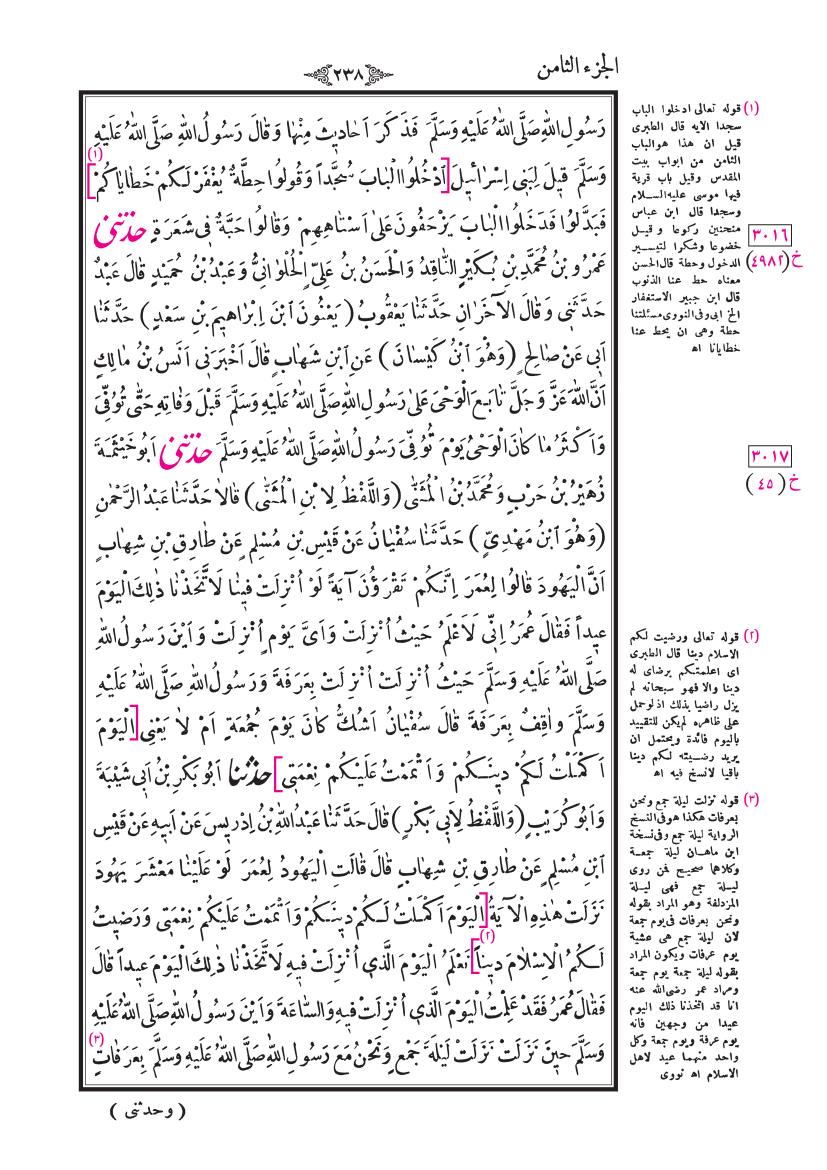 الجزء الثامن
٢٣٨
رَسُولِ اللهِ صَلَّى اللهُ عَلَيْهِ وَسَلَّمَ فَذَكَرَ اَحَاديثَ مِنْهَا وَقَالَ رَسُولُ اللهِ صَلَّى اللهُ عَلَيْهِ
وَسَلَّمَ قيلَ لِبَنى اِسْرَائيلَ [اُدْخُلُوا الْبَابَ سُجَّداً وَقُولُوا حِطَّةٌ يُغْفَرْ لَكُمْ خَطَايَاكُمْ] (١)
فَبَدَّلُوا فَدَخَلُوا الْبَابَ يَزْحَفُونَ عَلىٰ اَسْتَاهِهِمْ وَقَالُوا حَبَّةٌ فى شَعَرَةٍ حدثنى
عَمْرُو بْنُ مُحَمَّدِ بْنِ بُكَيْرٍ النَّاقِدُ وَالْحَسَنُ بْنُ عَلِىٍّ الْحُلْوَانِىُّ وَعَبْدُ بْنُ حُمَيْدٍ قَالَ عَبْدٌ
حَدَّثَنى وَقَالَ الْآخَرَانِ حَدَّثَنَا يَعْقُوبُ (يَعْنُونَ ابْنَ اِبْرَاهيمَ بْنِ سَعْدٍ) حَدَّثَنَا
اَبى عَنْ صَالِحٍ (وَهُوَ ابْنُ كَيْسَانَ) عَنِ ابْنِ شِهَابٍ قَالَ اَخْبَرَنى اَنَسُ بْنُ مَالِكٍ
اَنَّ اللهَ عَزَّ وَجَلَّ تَابَعَ الْوَحْىَ عَلىٰ رَسُولِ اللهِ صَلَّى اللهُ عَلَيْهِ وَسَلَّمَ قَبْلَ وَفَاتِهِ حَتّٰى تُوُفِّىَ
وَاَكْثَرُ مَا كَانَ الْوَحْىُ يَوْمَ تُوُفِّىَ رَسُولُ اللهِ صَلَّى اللهُ عَلَيْهِ وَسَلَّمَ حدثنى اَبُو خَيْثَمَةَ
زُهَيْرُ بْنُ حَرْبٍ وَمُحَمَّدُ بْنُ الْمُثَنّٰى (وَاللَّفْظُ لِابْنِ الْمُثَنّٰى) قَالَا حَدَّثَنَا عَبْدُ الرَّحْمٰنِ
(وَهُوَ ابْنُ مَهْدِىٍّ) حَدَّثَنَا سُفْيَانُ عَنْ قَيْسِ بْنِ مُسْلِمٍ عَنْ طَارِقِ بْنِ شِهَابٍ
اَنَّ الْيَهُودَ قَالُوا لِعُمَرَ اِنَّكُمْ تَقْرَؤُنَ آيَةً لَوْ اُنْزِلَتْ فينَا لَاتَّخَذْنَا ذٰلِكَ الْيَوْمَ
عيداً فَقَالَ عُمَرُ اِنّى لَاَعْلَمُ حَيْثُ اُنْزِلَتْ وَاَىَّ يَوْمٍ اُنْزِلَتْ وَاَيْنَ رَسُولُ اللهِ
صَلَّى اللهُ عَلَيْهِ وَسَلَّمَ حَيْثُ اُنْزِلَتْ اُنْزِلَتْ بِعَرَفَةَ وَرَسُولُ اللهِ صَلَّى اللهُ عَلَيْهِ
وَسَلَّمَ وَاقِفٌ بِعَرَفَةَ قَالَ سُفْيَانُ اَشُكُّ كَانَ يَوْمَ جُمُعَةٍ اَمْ لَا يَعْنى [اَلْيَوْمَ
اَكْمَلْتُ لَكُمْ دينَكُمْ وَاَتْمَمْتُ عَلَيْكُمْ نِعْمَتى] حدثنا اَبُو بَكْرِ بْنُ اَبى شَيْبَةَ
وَاَبُو كُرَيْبٍ (وَاللَّفْظُ لِاَبى بَكْرٍ) قَالَ حَدَّثَنَا عَبْدُ اللهِ بْنُ اِدْريسَ عَنْ اَبيهِ عَنْ قَيْسِ
ابْنِ مُسْلِمٍ عَنْ طَارِقِ بْنِ شِهَابٍ قَالَ قَالَتِ الْيَهُودُ لِعُمَرَ لَوْ عَلَيْنَا مَعْشَرَ يَهُودَ
نَزَلَتْ هٰذِهِ الْآيَةُ [اَلْيَوْمَ اَكْمَلْتُ لَكُمْ دينَكُمْ وَاَتْمَمْتُ عَلَيْكُمْ نِعْمَتى وَرَضيتُ
لَكُمُ الْاِسْلَامَ ديناً] (٢) نَعْلَمُ الْيَوْمَ الَّذى اُنْزِلَتْ فيهِ لَاتَّخَذْنَا ذٰلِكَ الْيَوْمَ عيداً قَالَ
فَقَالَ عُمَرُ فَقَدْ عَلِمْتُ الْيَوْمَ الَّذى اُنْزِلَتْ فيهِ وَالسَّاعَةَ وَاَيْنَ رَسُولُ اللهِ صَلَّى اللهُ عَلَيْهِ
وَسَلَّمَ حينَ نَزَلَتْ نَزَلَتْ لَيْلَةَ جَمْعٍ وَنَحْنُ مَعَ رَسُولِ اللهِ صَلَّى اللهُ عَلَيْهِ وَسَلَّمَ بِعَرَفَاتٍ (٣)
( وحدثنى )
(١) قوله تعالى ادخلوا الباب
سجدا الايه قال الطبرى
قيل ان هذا هو الباب
الثامن من ابواب بيت
المقدس وقيل باب قرية
فيها موسى عليه السلام
وسجدا قال ابن عباس
منحنين ركوعا وقيل
خضوعا وشكرا لتيسير
الدخول وحطة قال الحسن
معناه حط عنا الذنوب
قال ابن جبير الاستغفار
الخ ابى وفى النووى مسئلتنا
حطة وهى ان يحط عنا
خطايانا اه
٣٠١٦
خ (٤٩٨٢)
٣٠١٧
خ (٤٥)
(٢) قوله تعالى ورضيت لكم
الاسلام دينا قال الطبرى
اى اعلمتكم برضاى له
دينا والا فهو سبحانه لم
يزل راضيا بذلك اذ لو حمل
على ظاهره لم يكن للتقييد
باليوم فائدة ويحتمل ان
يريد رضيته لكم دينا
باقيا لا نسخ فيه اه
(٣) قوله نزلت ليلة جمع ونحن
بعرفات هكذا هو فى النسخ
الرواية ليلة جمع وفى نسخة
ابن ماهان ليلة جمعة
وكلاهما صحيح فمن روى
ليلة جمع فهى ليلة
المزدلفة وهو المراد بقوله
ونحن بعرفات فى يوم جمعة
لان ليلة جمع هى عشية
يوم عرفات ويكون المراد
بقوله ليلة جمعة يوم جمعة
ومراد عمر رضى الله عنه
انا قد اتخذنا ذلك اليوم
عيدا من وجهين فانه
يوم عرفة ويوم جمعة وكل
واحد منهما عيد لاهل
الاسلام اه نووى